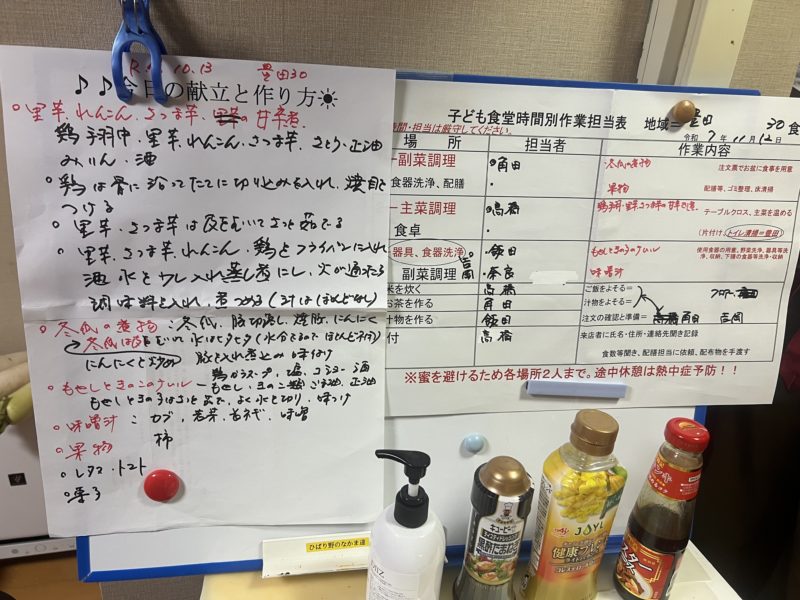 10.13 豊田30
♪♪今日の献立と作り方☀
○里芋.れんこん.さつま芋の甘辛煮.
鶏手羽中.里芋.れんこん.さつま芋.さとう.正油
みりん.酒
○鶏は骨に沿ってたてに切り込みを入れ.焼目を
つける
○里芋.さつま芋は皮をむいてさっと茹でる
○里芋.さつま芋.れんこん.鶏をフライパンに入れ
酒 水を少し入れ蒸し煮にし、火が通ったら
調味料を入れ.煮つめる(汁はほとんどなし)
○冬瓜の煮物:冬瓜.豚切落し.にんにく
冬瓜は皮をむいて
にんにくと 豚を入れ煮込み 味付け
鶏ガラスープ.塩.コショー.酒
○もやしときのこのナムル－もやし.きのこ2種 ごま油.正油
もやしときのこはさっと茹で.よく水を切り.味つけ
○味噌汁:カブ. .長ネギ.味噌
○果物 柿
○レタス.トマト
子ども食堂時間別作業担当表 地域=豊田 30食
時間・担当は厳守してください。 令和7年11月12日
場 所 担当者 作業内容
副菜調理 角田 冬瓜の煮物 注文票でお盆に食事を用意
食器洗浄、配膳 果物 配膳等、ゴミ整理、床清掃
主菜調理 高橋 鶏手羽.里芋.さつま芋の甘辛煮. テーブルクロス、主菜を温める
食卓 (片付け、トイレ清掃=豊田)
器具、食器洗浄 飯田 もやしときのこのナムル 使用食器の用意、野菜洗浄、器具等洗浄、収納、下膳の食器等洗浄・収納
副菜調理 吉岡 奈良 味噌汁
米を炊く 高橋 ご飯をよそる=
お茶を作る 角田 汁物をよそる=
汁物を作る 飯田 注文の確認と準備= 角田 吉岡
付 高橋 来店者に氏名・住所・連絡先聞き記録
食数等聞き、配膳担当に依頼、配布物を手渡す
※蜜を避けるため各場所2人まで。途中休憩は熱中症予防！！
ひばり野のなかま達
キユーピー
黒酢たまねぎ
AJINOMOTO
JOYL
健康プレミアム